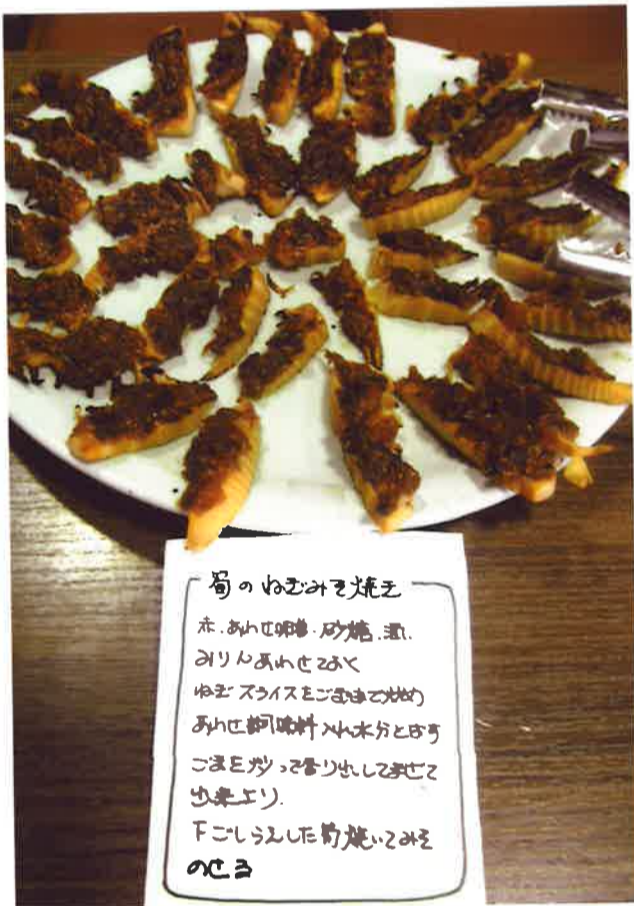 筍のねぎみそ焼き
赤、あわせ味噌、砂糖、酒、
みりんあわせておく
ねぎスライスをごま油で炒め
あわせ調味料入れ水分とばす
ごまを炒って香り出してまぜて
出来上り.
下ごしらえした筍焼いてみそ
のせる